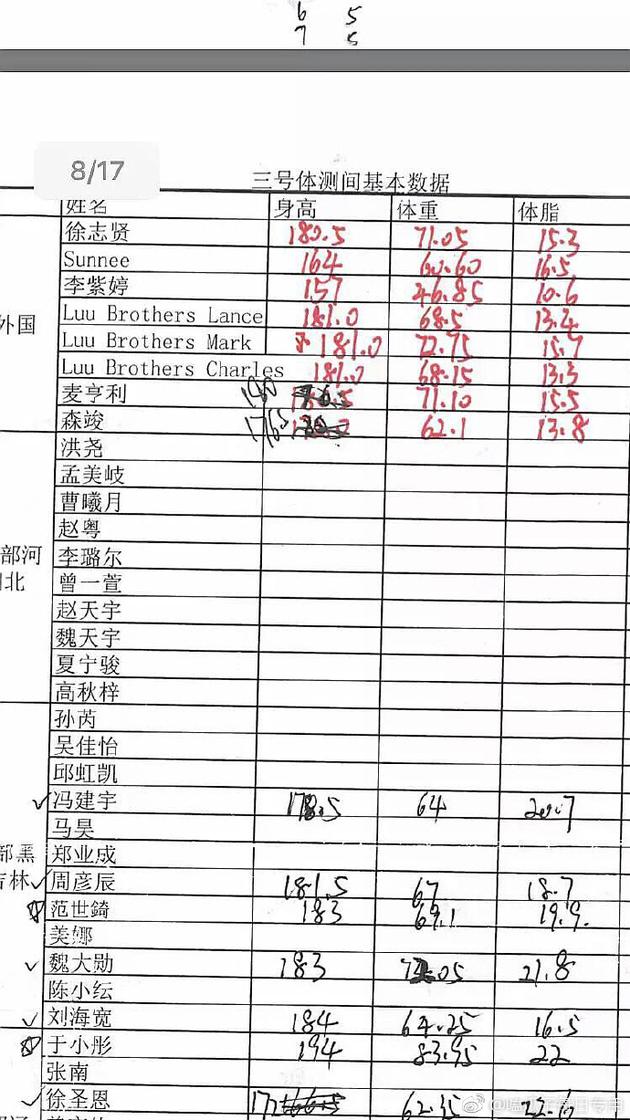 6 5
7 5
8/17
三号体测间基本数据
姓名 身高 体重 体脂
徐志贤 180.5 71.05 15.3
Sunnee 164 60.60 16.5
李紫婷 157 46.85 10.6
外国
Luu Brothers Lance 181.0 68.5 13.4
Luu Brothers Mark 181.0 72.75 15.7
Luu Brothers Charles 181.0 68.15 13.3
麦亨利 180 71.10 15.5
森竣 176.5 62.1 13.8
洪尧
孟美岐
曹曦月
赵粤
部河
北
李璐尔
曾一萱
赵天宇
魏天宇
夏宁骏
高秋梓
孙芮
吴佳怡
邱虹凯
冯建宇 178.5 64 20.7
马昊
部黑
吉林
郑业成
周彦辰 181.5 67 18.7
范世錡 183 69.1 19.9.
美娜
魏大勋 183 .05 21.8
陈小纭
刘海宽 184 64.25 16.5
于小彤 194 83.95 22
张南
徐圣恩 172 62.35